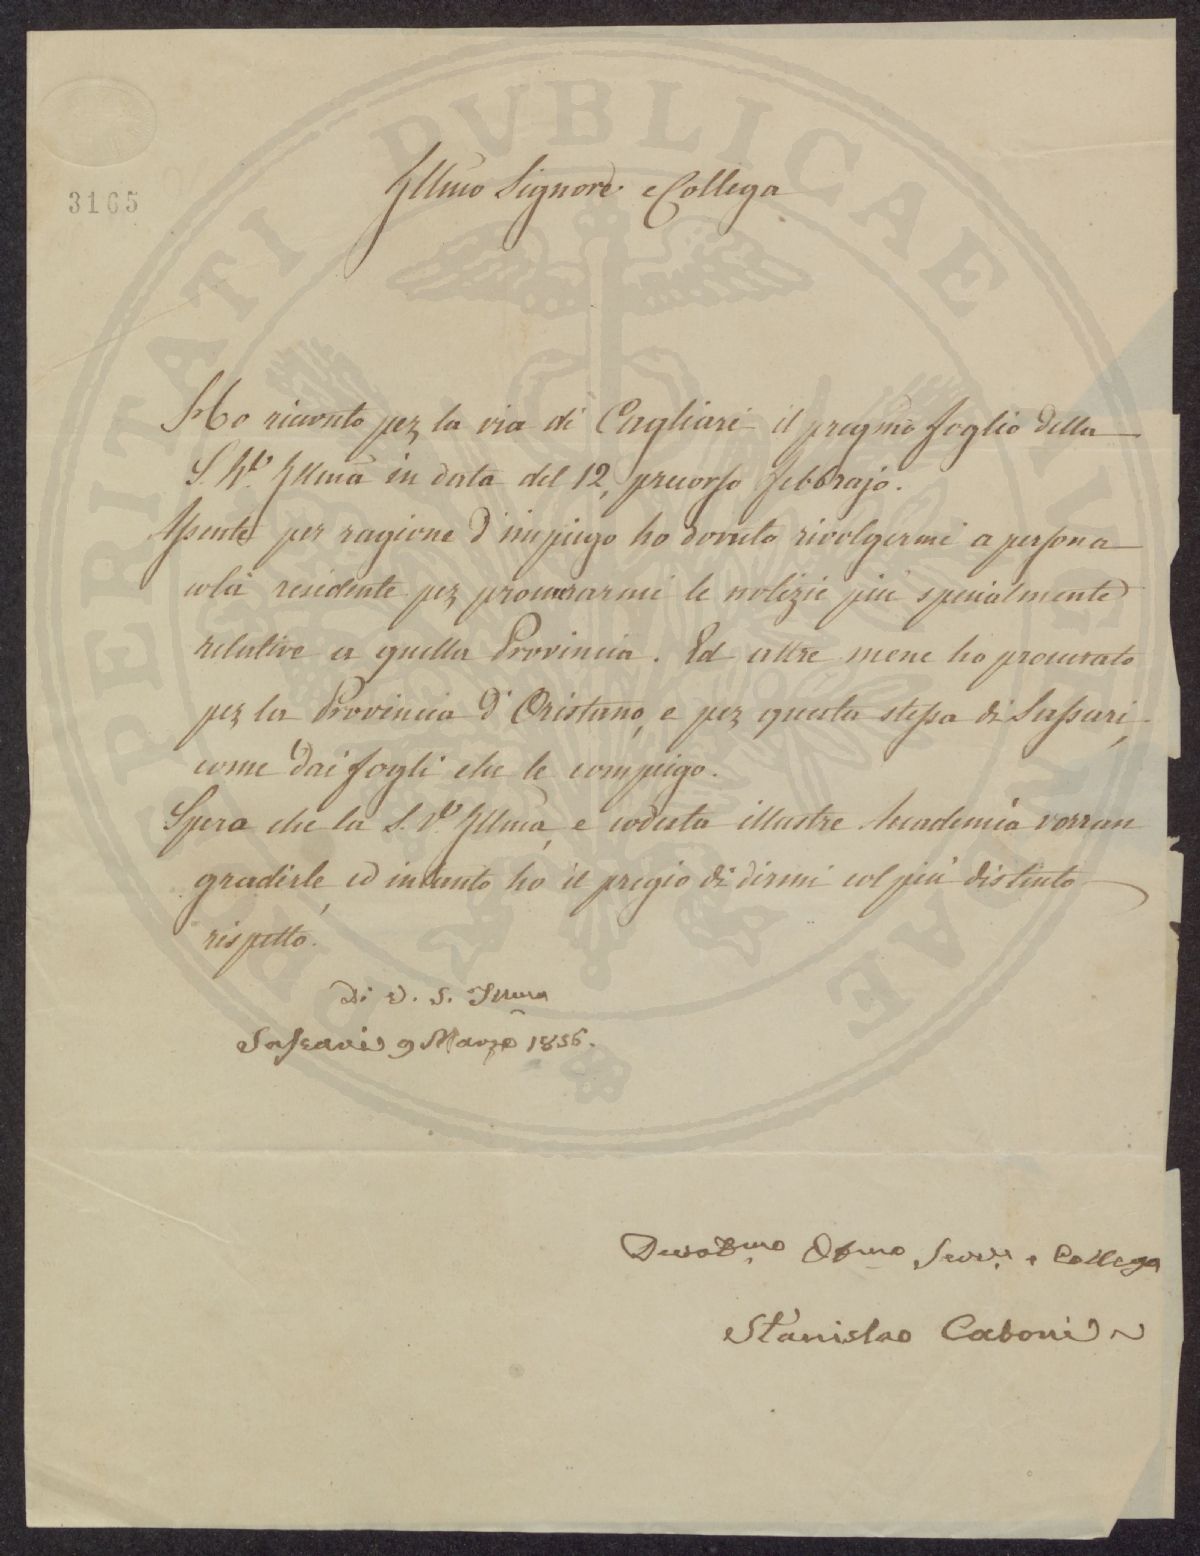 PROSPERITATI PVBLICAE AVGENDAE
3165
Illmo Signore e Collega
Ho ricevuto per la via di Cagliari il pregmo foglio della
S. Va. Illma in data del 12, precorso febbrajo.
Assente per ragione d'impiego ho dovuto rivolgermi a persona
colà residente per procurarmi le notizie più specialmente
relative a quella Provincia. Ed altre mene ho procurato
per la Provincia d'Oristano, e per questa stessa di Sassari,
come dai fogli che le compiego.
Spero che la S. Va. Illma, e codesta illustre Accademia vorran
gradirle, ed intanto ho il pregio di dirmi col più distinto
rispetto.
Di V. S. Illma
Sassari 9 Marzo 1856.
Devotmo Obmo Servre e Collega
Stanislao Caboni